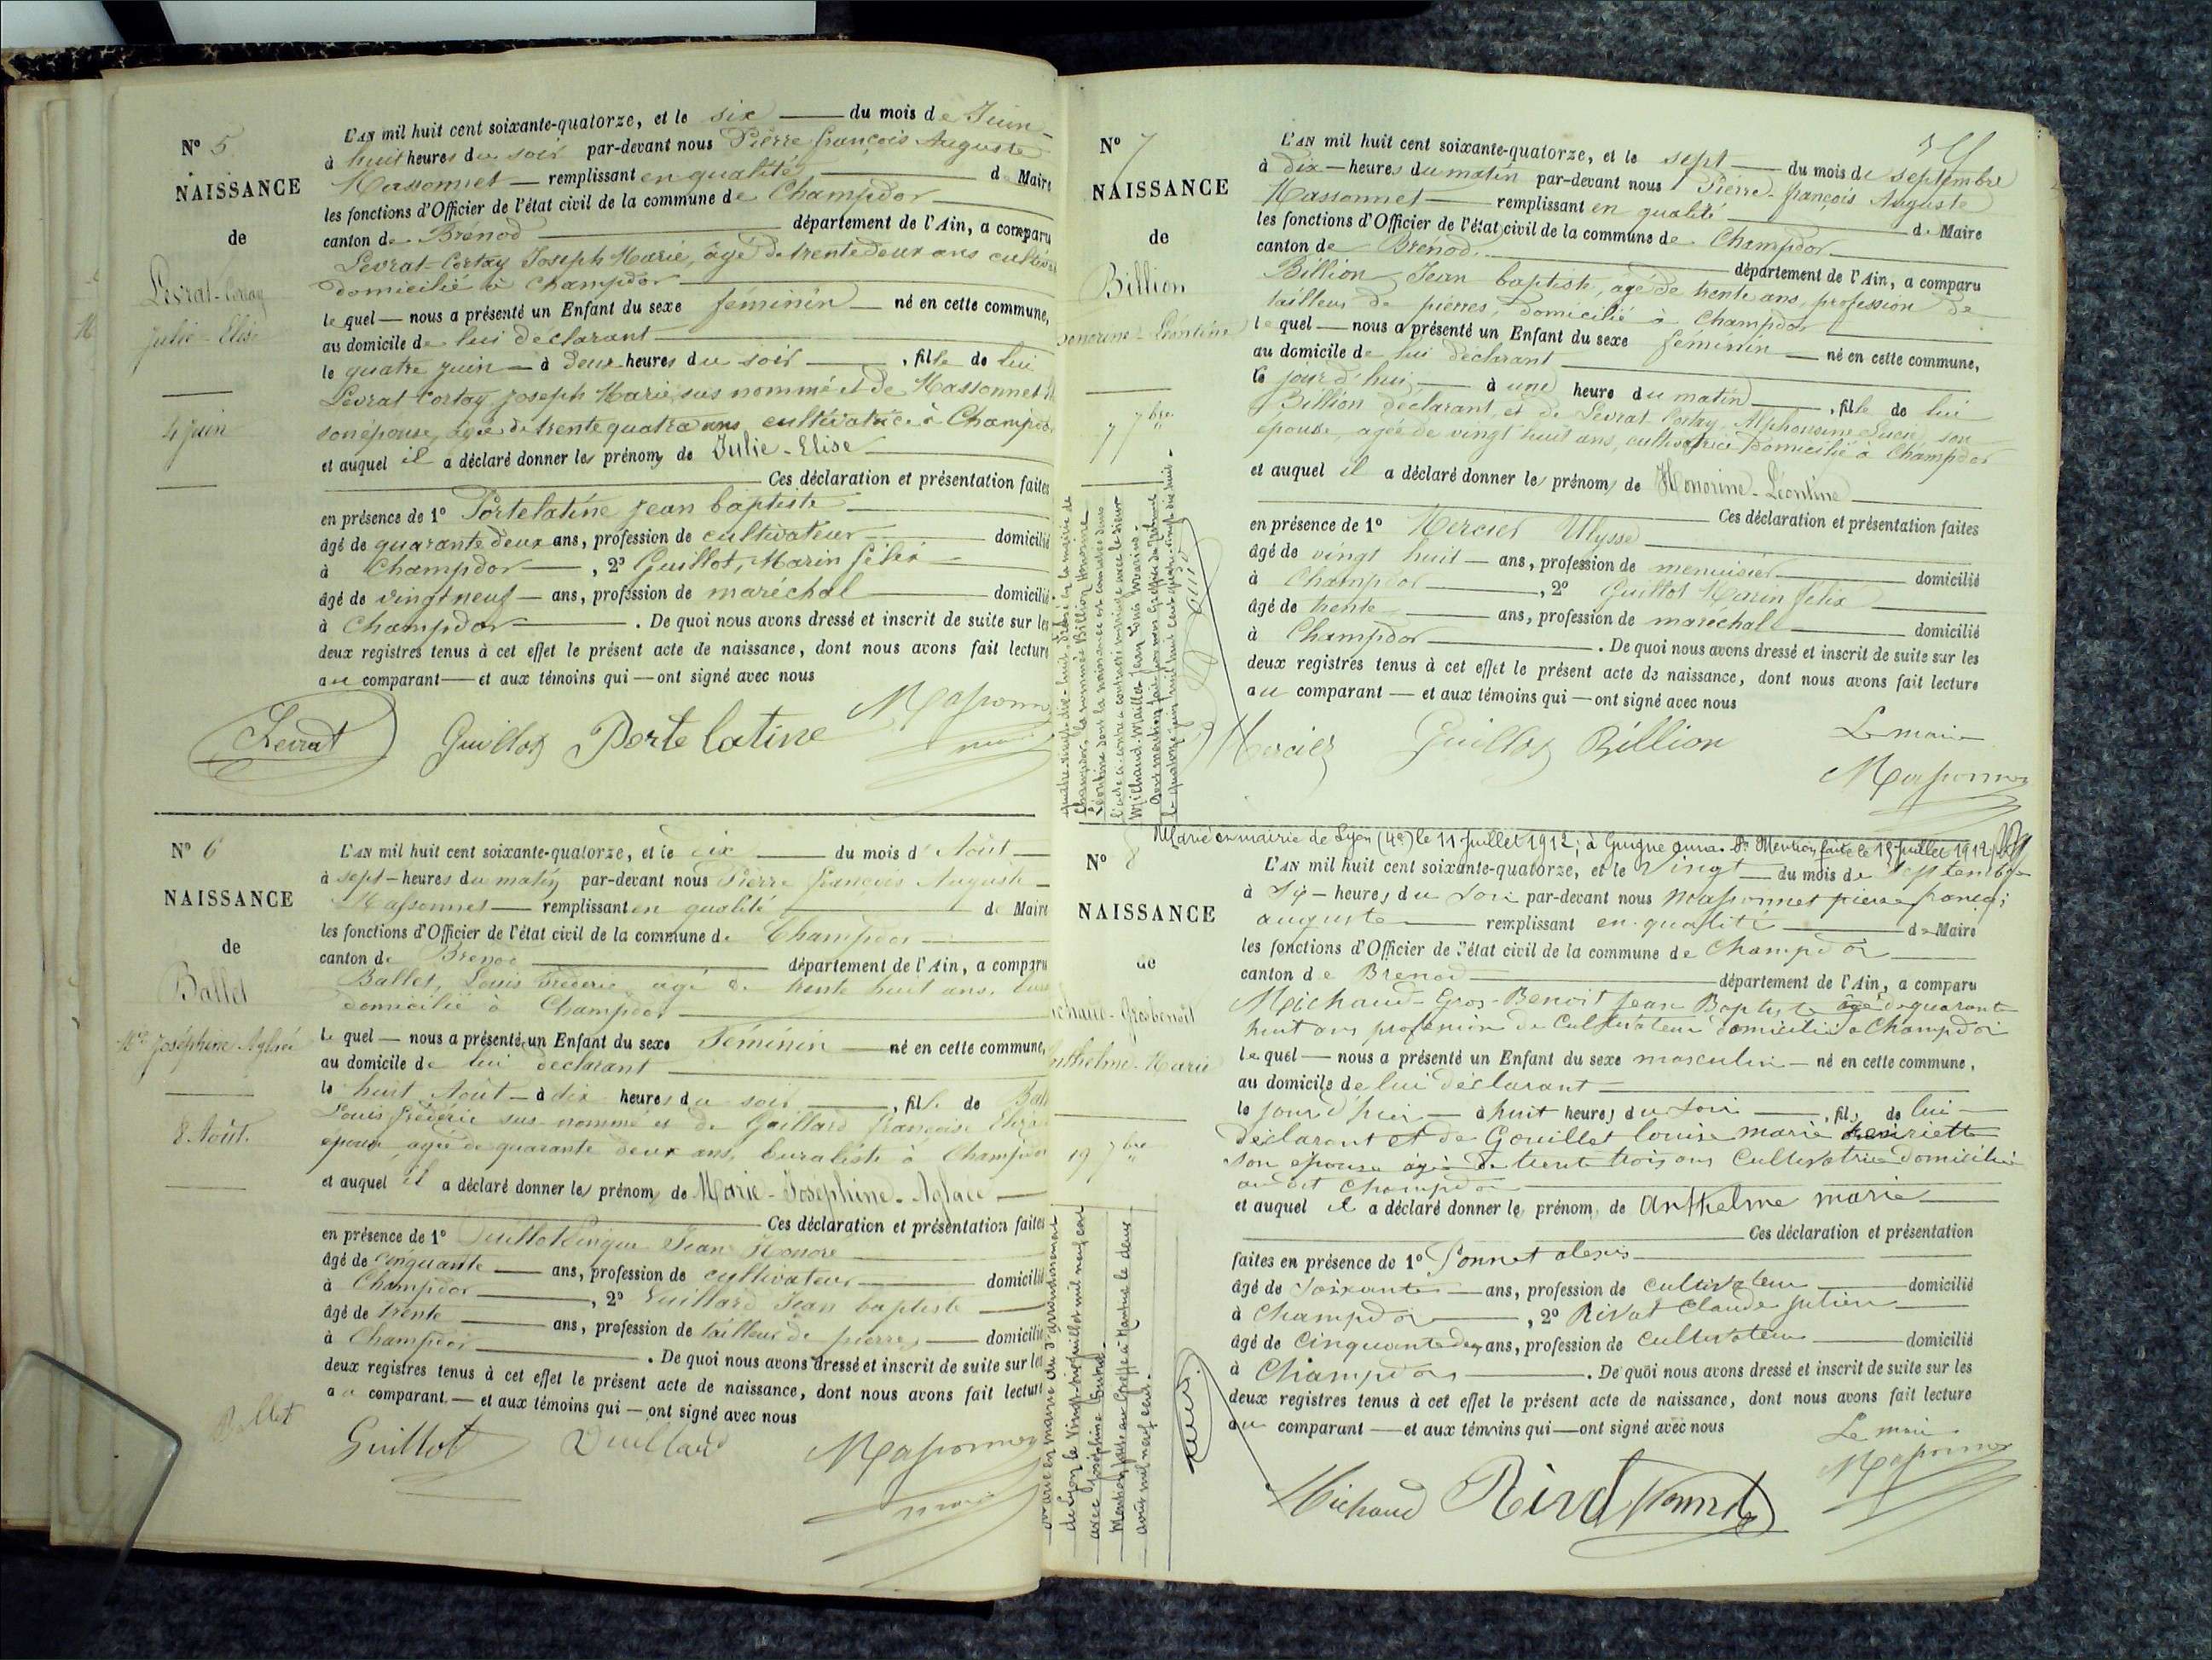 N° 5
NAISSANCE
de
Levrat-Cortay
Julie-Elise
4 juin
L'AN mil huit cent soixante-quatorze, et le six du mois de Juin
à huit heures du soir par-devant nous Pierre françois Auguste
Massonnet remplissant en qualité de Maire
les fonctions d'Officier de l'état civil de la commune de Champdor
canton de Brénod département de l'Ain, a comparu
Levrat-Cortay Joseph Marie, âgé de trente deux ans
domicilié à Champdor
le quel nous a présenté un Enfant du sexe féminin né en cette commune,
au domicile de lui déclarant
le quatre juin à deux heures du soir, fille de lui
Levrat Cortay Joseph Marie sus nommé et de Massonnet
son épouse, âgée de trente quatre ans cultivatrice à Champdor
et auquel il a déclaré donner les prénoms de Julie-Elise
Ces déclaration et présentation faites
en présence de 1° Portelatine Jean baptiste
âgé de quarante deux ans, profession de cultivateur domicilié
à Champdor, 2° Guillot, Marin félix
âgé de vingt neuf ans, profession de maréchal domicilié
à Champdor. De quoi nous avons dressé et inscrit de suite sur les
deux registres tenus à cet effet le présent acte de naissance, dont nous avons fait lecture
au comparant et aux témoins qui ont signé avec nous
Levrat Guillot Portelatine Massonnet
N° 6
NAISSANCE
de
Ballet
Mie Joséphine Aglaé
8 Août
L'AN mil huit cent soixante-quatorze, et le dix du mois d'Août
à sept heures du matin par-devant nous Pierre françois Auguste
Massonnet remplissant en qualité de Maire
les fonctions d'Officier de l'état civil de la commune de Champdor
canton de Brenod département de l'Ain, a comparu
Ballet, Louis fréderic, agé de trente huit ans,
domicilié à Champdor
le quel nous a présenté un Enfant du sexe Féminin né en cette commune,
au domicile de lui déclarant
le huit Août à dix heures du soir, fille de
Louis fréderic sus nommé et de Gaillard françoise
épouse, agée de quarante deux ans, buraliste à Champdor
et auquel il a déclaré donner les prénoms de Marie-Joséphine-Aglaée
Ces déclaration et présentation faites
en présence de 1° Jean Honoré
âgé de cinquante ans, profession de cultivateur domicilié
à Champdor, 2° Jean baptiste
âgé de trente ans, profession de tailleur de pierres domicilié
à Champdor. De quoi nous avons dressé et inscrit de suite sur les
deux registres tenus à cet effet le présent acte de naissance, dont nous avons fait lecture
au comparant et aux témoins qui ont signé avec nous
Ballet Guillot Massonnet
N° 7
NAISSANCE
de
Billion
Honorine-Léontine
7 7bre
L'AN mil huit cent soixante-quatorze, et le sept du mois de septembre
à dix heures du matin par-devant nous Pierre-françois Auguste
Massonnet remplissant en qualité de Maire
les fonctions d'Officier de l'état civil de la commune de Champdor
canton de Brénod département de l'Ain, a comparu
Billion Jean baptiste, agé de trente ans, profession de
tailleur de pierres, domicilié à Champdor
le quel nous a présenté un Enfant du sexe féminin né en cette commune,
au domicile de lui déclarant
le jour d'hui à une heure du matin, fille de lui
Billion déclarant, et de Levrat Cortay Alphonsine Lucie, son
épouse, agée de vingt huit ans, cultivatrice domicilié à Champdor
et auquel il a déclaré donner les prénoms de Honorine-Léontine
Ces déclaration et présentation faites
en présence de 1° Mercier Ulysse
âgé de vingt huit ans, profession de menuisier domicilié
à Champdor, 2° Guillot Marin félix
âgé de trente ans, profession de maréchal domicilié
à Champdor. De quoi nous avons dressé et inscrit de suite sur les
deux registres tenus à cet effet le présent acte de naissance, dont nous avons fait lecture
au comparant et aux témoins qui ont signé avec nous
Mercier Guillot Billion Le maire
Massonnet
N° 8
NAISSANCE
de
Michaud-Grosbenoit
Anthelme-Marie
19 7bre
Marié en mairie de Lyon (4e) le 11 Juillet 1912; à Guigne Mention faite le 15 Juillet 1912
L'AN mil huit cent soixante-quatorze, et le Vingt du mois de Septembre
à Six heures du Soir par-devant nous Massonnet pierre françois
auguste remplissant en qualité de Maire
les fonctions d'Officier de l'état civil de la commune de Champdor
canton de Brenod département de l'Ain, a comparu
Michaud-Gros-Benoit Jean Baptiste âgé de quarante
huit ans profession de Cultivateur domicilié a Champdor
le quel nous a présenté un Enfant du sexe masculin né en cette commune,
au domicile de lui déclarant
le jour d'hier à huit heures du Soir, fils de lui
déclarant et de Gouillet louise marie henriette
son épouse âgée de trente trois ans Cultivatrice domiciliée
au dit Champdor
et auquel il a déclaré donner les prénoms de Anthelme marie
Ces déclaration et présentation
faites en présence de 1° Sonnet alexis
âgé de Soixante ans, profession de Cultivateur domicilié
à Champdor, 2° Rivat Claude julien
âgé de Cinquante deux ans, profession de Cultivateur domicilié
à Champdor. De quoi nous avons dressé et inscrit de suite sur les
deux registres tenus à cet effet le présent acte de naissance, dont nous avons fait lecture
au comparant et aux témoins qui ont signé avec nous
Le maire
Michaud Rivat Sonnet Massonnet